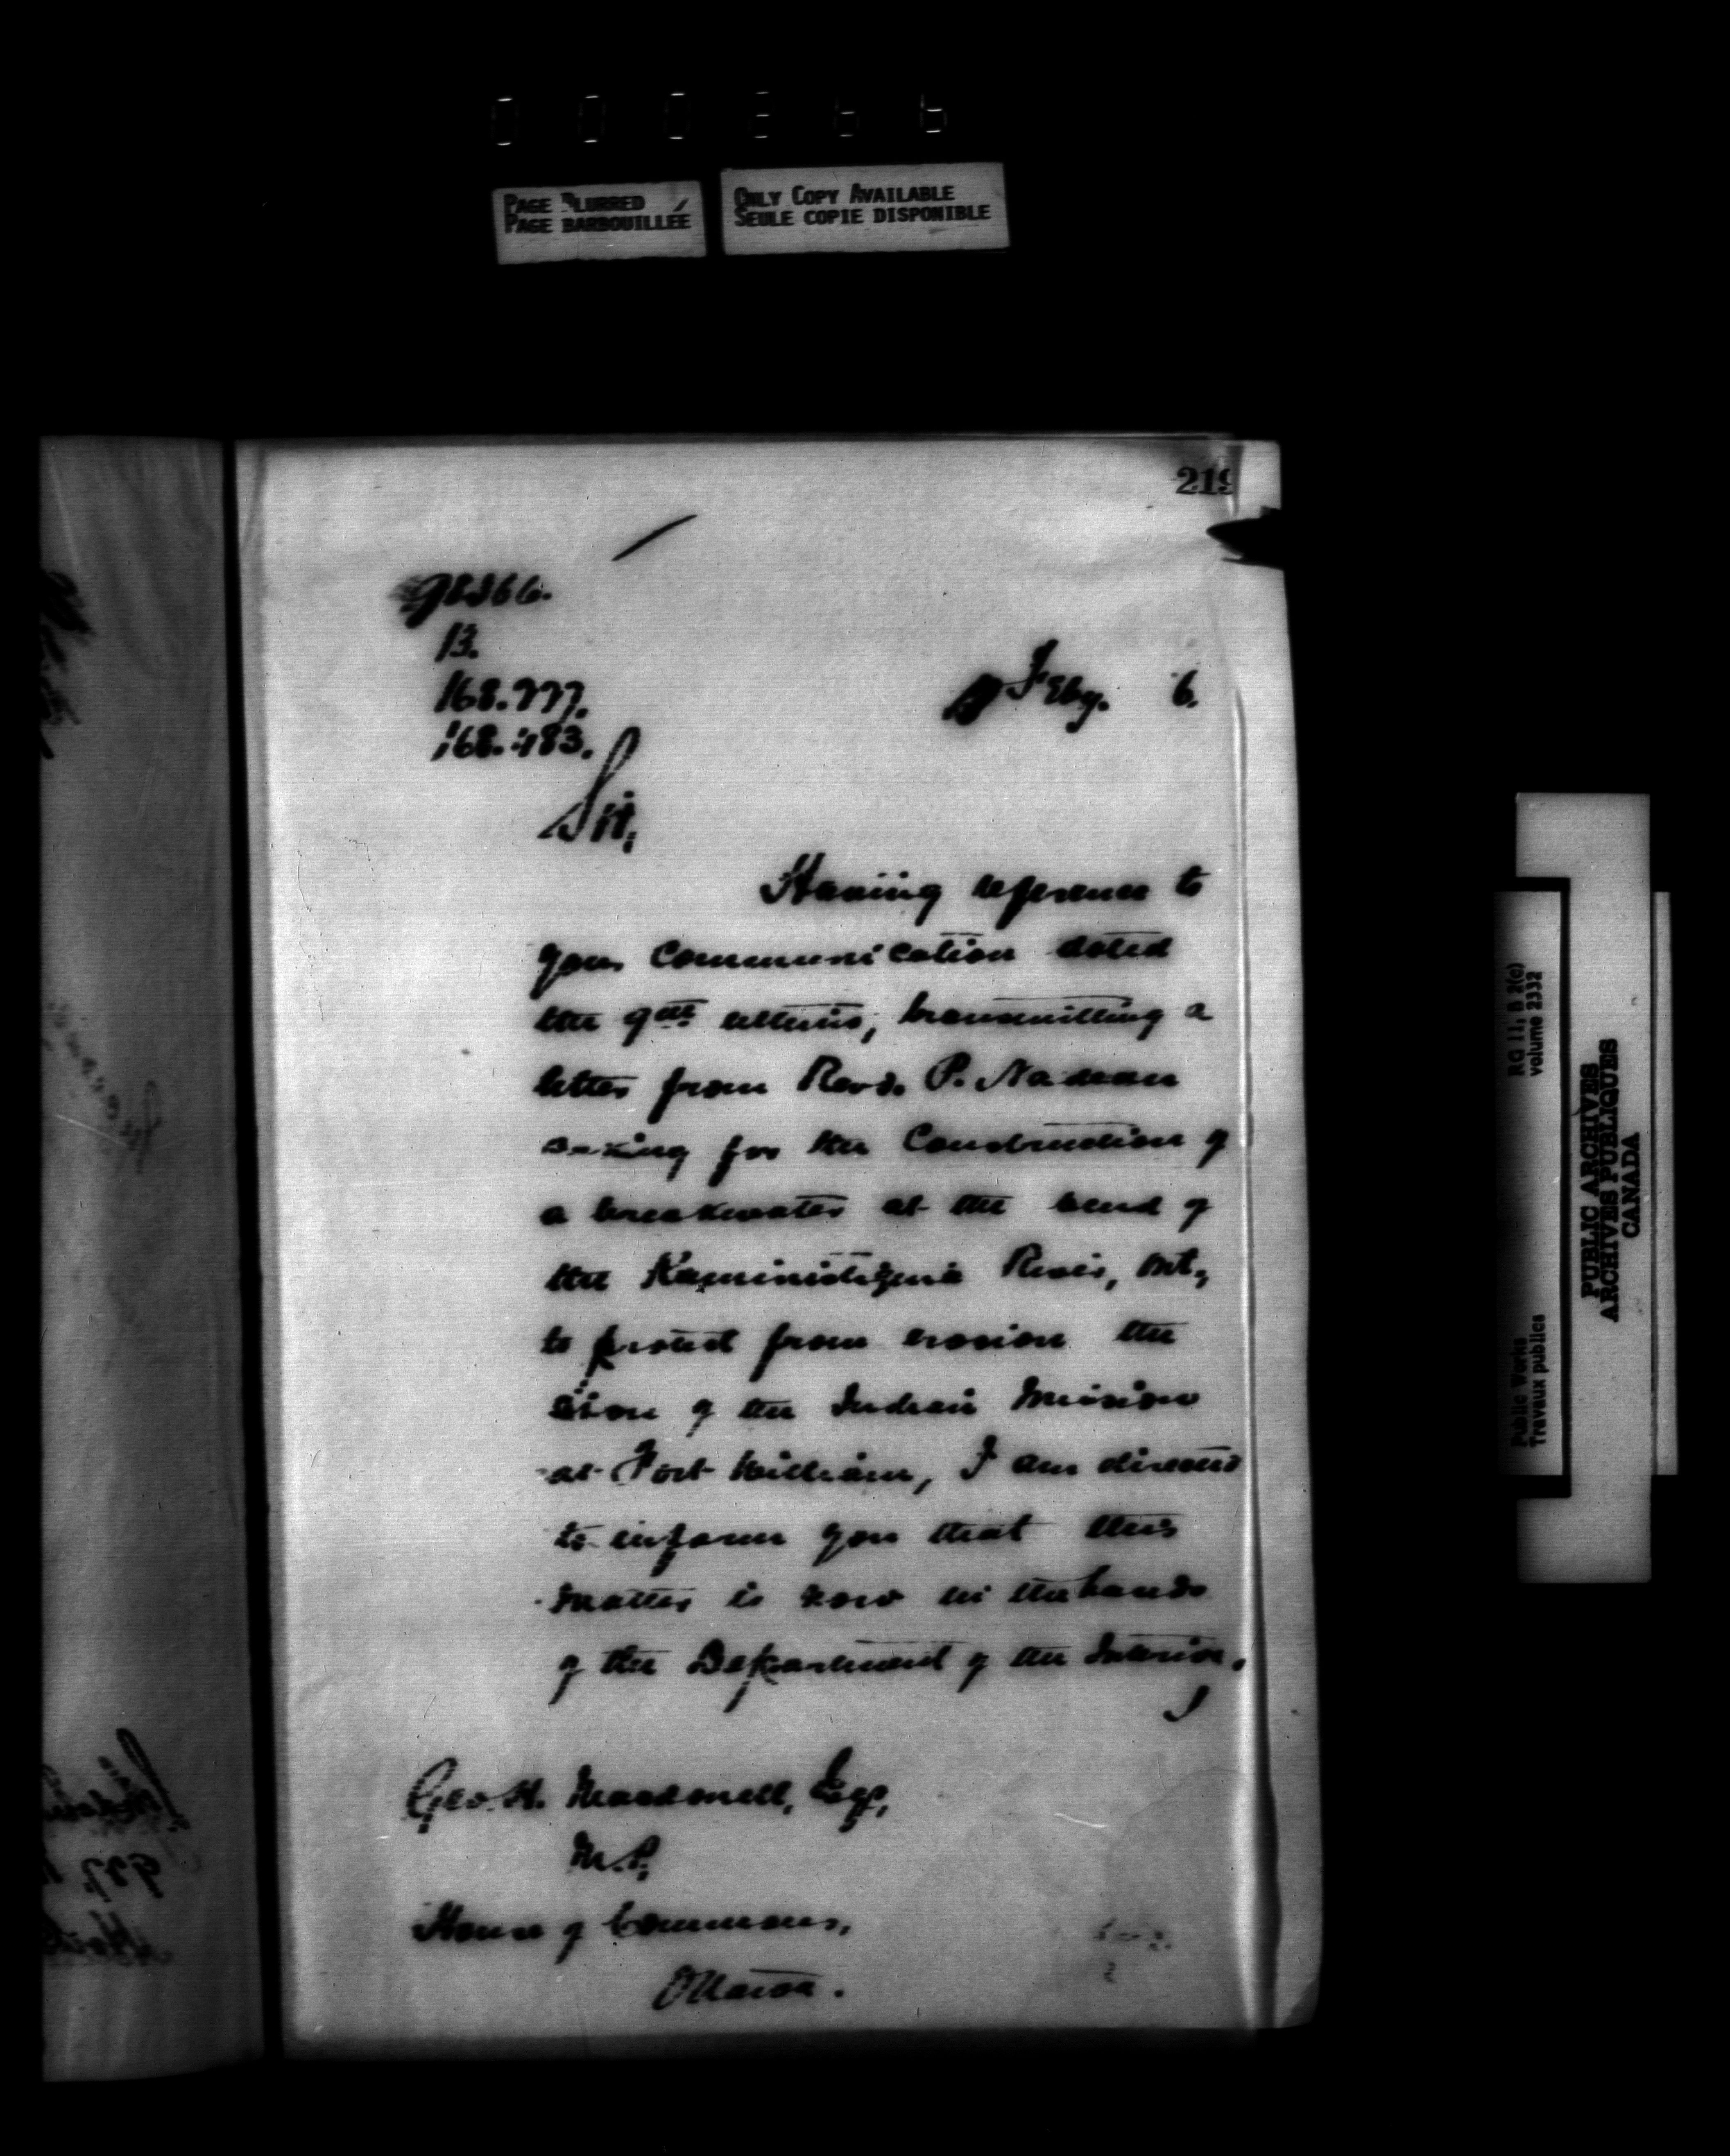 PAGE BLURRED
PAGE BARBOUILLÉE
ONLY COPY AVAILABLE
SEULE COPIE DISPONIBLE
219
13.
168.777.
168.483.
Feby. 6.
Sir,
Having reference to
your communication dated
the 9th ultimo, transmitting a
letter from Revd. P. Nadeau
asking for the Construction of
a breakwater at the bend of
the Kaministiquia River, Ont,
to protect from erosion the
of the Indian Mission
at Fort William, I am directed
to inform you that this
matter is now in the hands
of the Department of the Interior.
I
Geo. H. Macdonell, Esq,
M.P,
House of Commons,
Ottawa.
RG 11, B 2(c)
volume 2332
Public Works
Travaux publics
PUBLIC ARCHIVES
ARCHIVES PUBLIQUES
CANADA